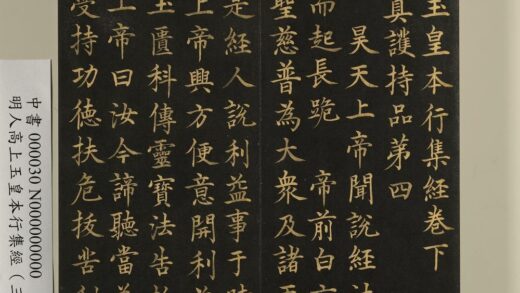 玉皇本行集經卷下
真護持品第四
昊天上帝聞說經法
而起長跪 帝前白
聖慈普為大衆及諸
是經人說利益事于時
上帝興方便意開利
玉匱科傳靈寶法告
上帝曰汝今諦聽當
受持功德扶危拔苦利
中書 000030 N000000000
明人高上玉皇本行集經（三